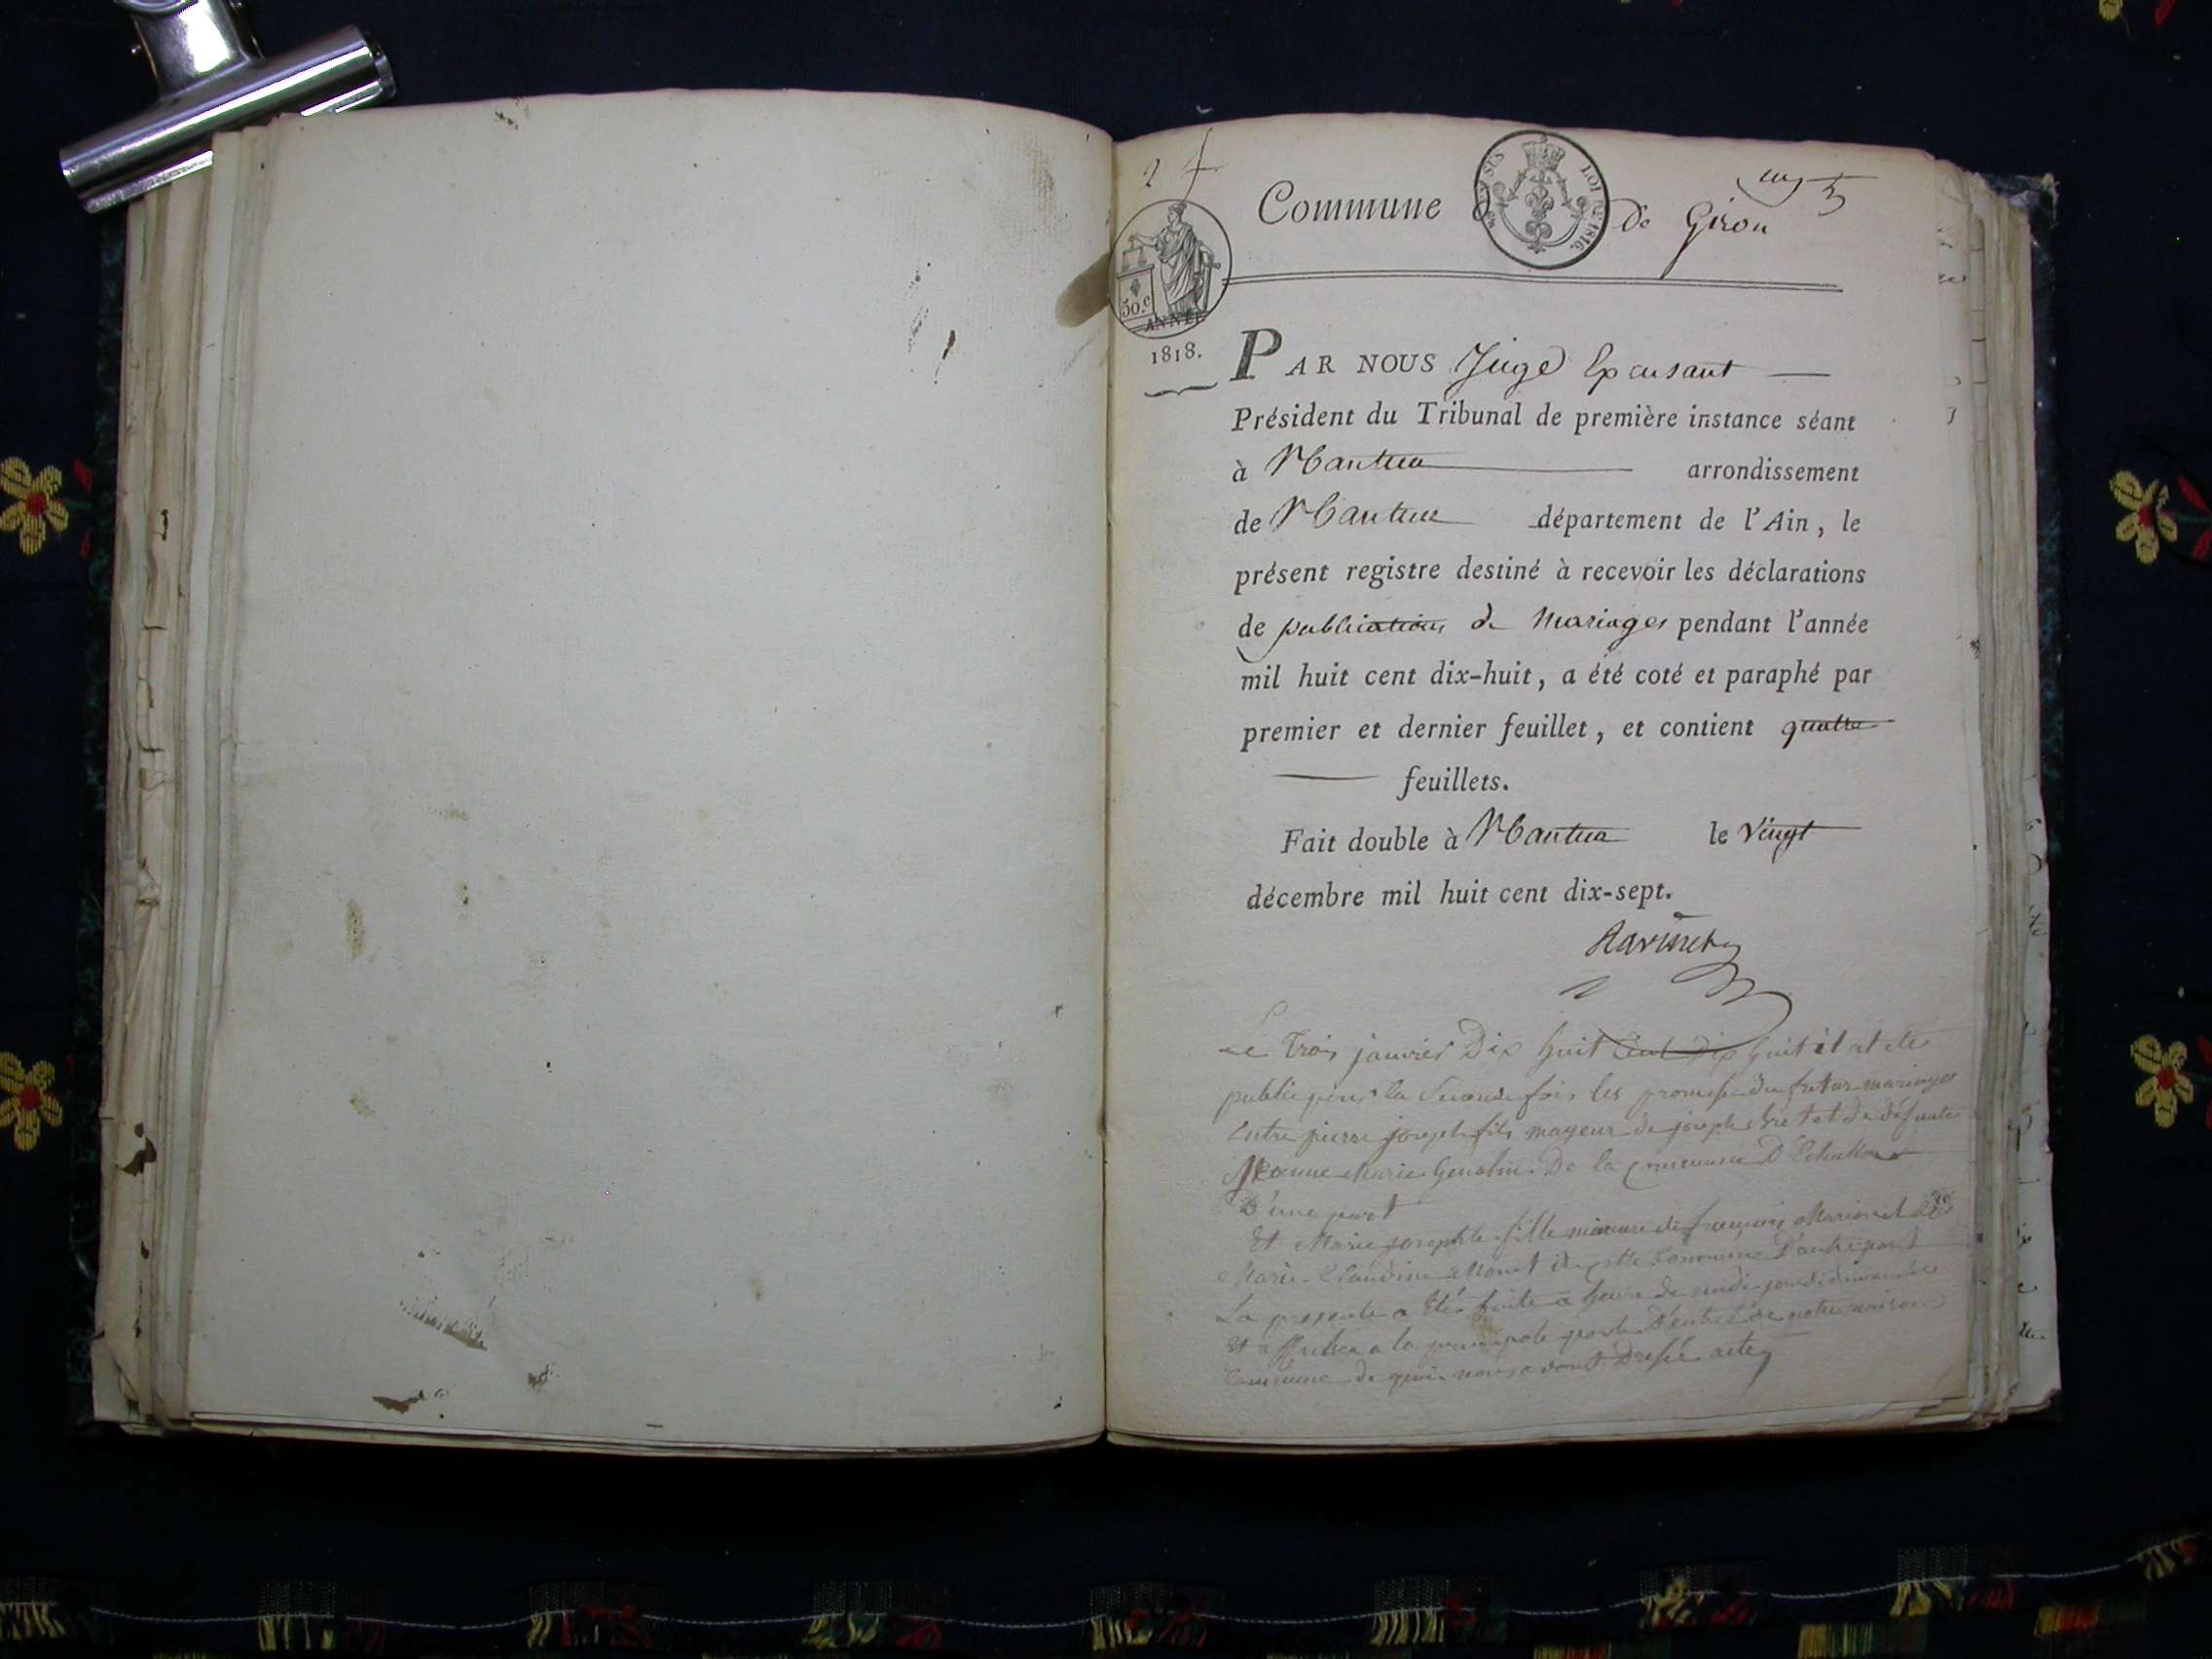 24
Commune De Giron
LOI DE 1816.
50.c
ANNÉE
1818.
PAR NOUS Juge Exp ensant
Président du Tribunal de première instance séant
à Nantua arrondissement
de Nantua département de l'Ain, le
présent registre destiné à recevoir les déclarations
de publications de Mariages pendant l'année
mil huit cent dix-huit, a été coté et paraphé par
premier et dernier feuillet, et contient quatre
feuillets.
Fait double à Nantua le Vingt
décembre mil huit cent dix-sept.
Le trois janvier Dix huit Cent Dix huit il at été
publié pour la Seconde fois les promesse du futur mariage
Entre pierre joseph fils mayeur de joseph et de défunte
Jeanne Marie De la commune D'Echallon
D'une part
Et Marie josephte fille mineure de françois Marion et de
Marie Claudine Monet de cette Commune D'autre part
La presente a Eté faite a heure de midi jour de dimanche
et affichée a la principale porte D'entrée de notre maison
Commune de quoi nous avont Dressé acte